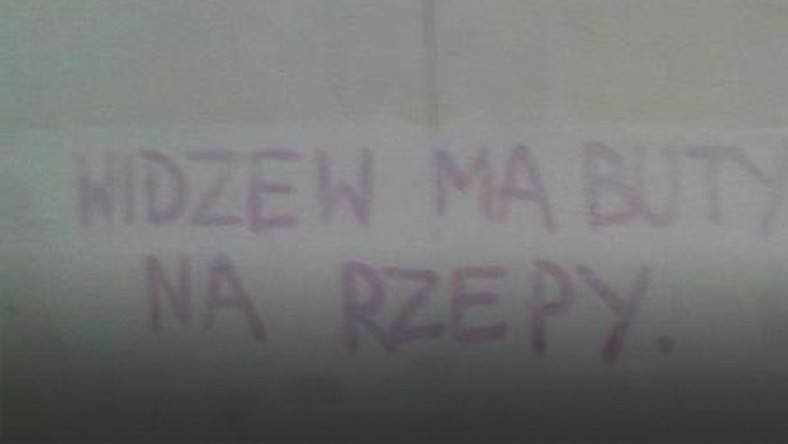 WIDZEW MA BUTY
NA RZEPY.